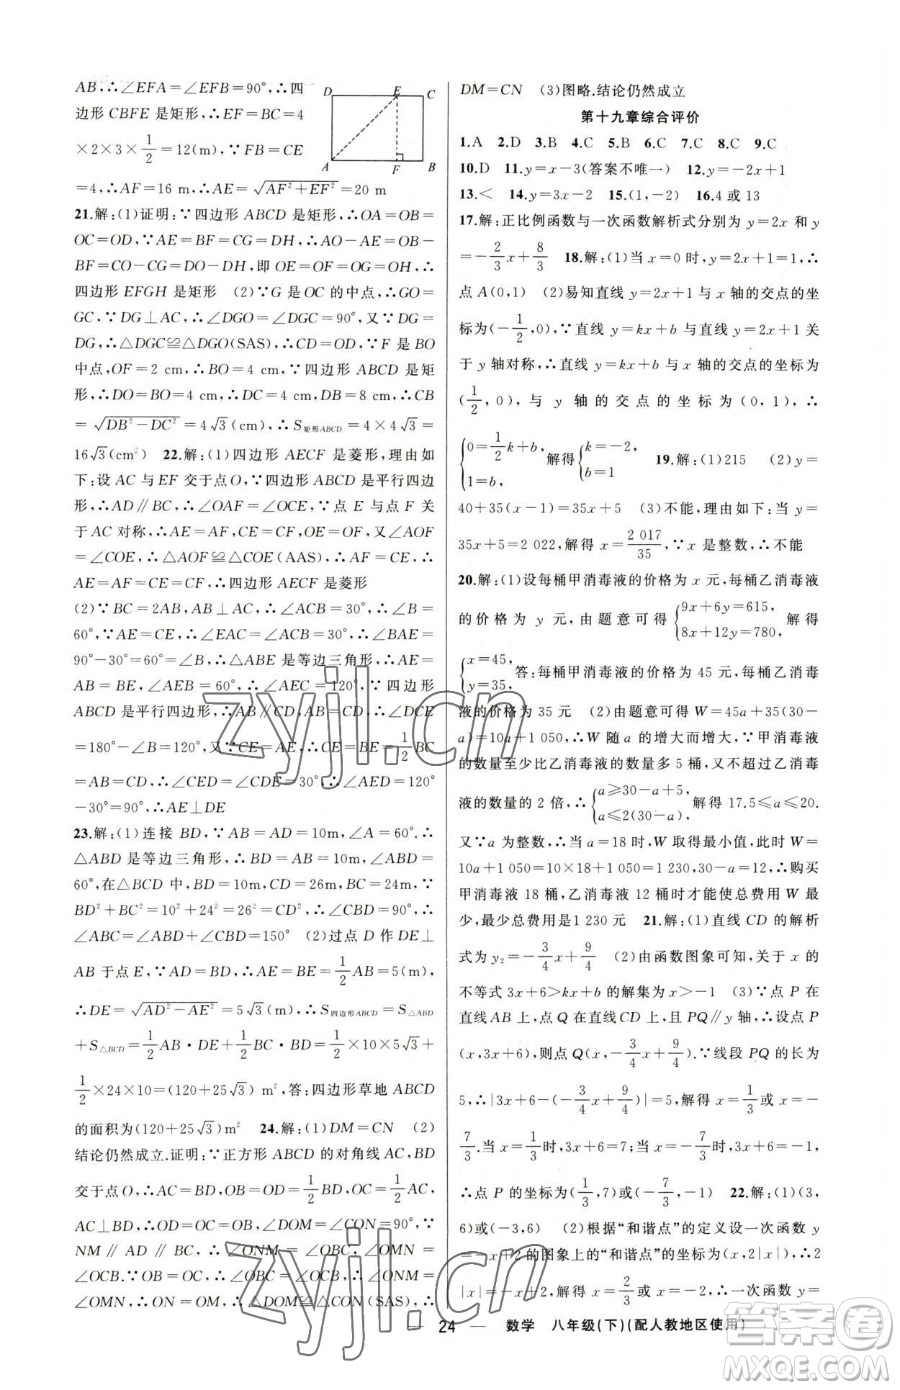 AB,∴∠EFA=∠EFB=90°,∴四
边形 CBFE 是矩形,∴EF=BC=4
×2×3×1/2=12(m),∵FB=CE
=4,∴AF=16 m,∴AE=√(AF²+EF²)=20 m
D E C
A F B
21.解:(1)证明:∵四边形 ABCD 是矩形,∴OA=OB=
OC=OD,∵AE=BF=CG=DH,∴AO-AE=OB-
BF=CO-CG=DO-DH,即 OE=OF=OG=OH,∴
四边形 EFGH 是矩形 (2)∵G 是 OC 的中点,∴GO=
GC,∵DG⊥AC,∴∠DGO=∠DGC=90°,又∵DG=
DG,∴△DGC≌△DGO(SAS),∴CD=OD,∵F 是 BO
中点,OF=2 cm,∴BO=4 cm,∵四边形 ABCD 是矩
形,∴DO=BO=4 cm,∴DC=4 cm,DB=8 cm,∴CB
=√(DB²-DC²)=4√3(cm),∴S矩形ABCD=4×4√3=
16√3(cm²) 22.解:(1)四边形 AECF 是菱形,理由如
下:设 AC 与 EF 交于点 O,∵四边形 ABCD 是平行四边
形,∴AD∥BC,∴∠OAF=∠OCE,∵点 E 与点 F 关
于 AC 对称,∴AE=AF,CE=CF,OE=OF,又∠AOF
=∠COE,∴△AOF≌△COE(AAS),∴AF=CE,∴
AE=AF=CE=CF,∴四边形 AECF 是菱形
(2)∵BC=2AB,AB⊥AC,∴∠ACB=30°,∴∠B=
60°,∵AE=CE,∴∠EAC=∠ACB=30°,∴∠BAE=
90°-30°=60°=∠B,∴△ABE 是等边三角形,∴
AB=BE,∠AEB=60°,∴∠AEC=120°,∵四边形
ABCD 是平行四边形,∴AB∥CD,AB=CD,∴∠DCE
=180°-∠B=120°,又∵CE=AE,∴CE=BE=1/2BC
=AB=CD,∴∠CED=∠CDE=30°,∴∠AED=120°
-30°=90°,∴AE⊥DE
23.解:(1)连接 BD,∵AB=AD=10m,∠A=60°,∴
△ABD 是等边三角形,∴BD=AB=10m,∠ABD=60°,
在△BCD 中,BD=10m,CD=26m,BC=24m,∵
BD²+BC²=10²+24²=26²=CD²,∴∠CBD=90°,∴
∠ABC=∠ABD+∠CBD=150° (2)过点 D 作 DE⊥
AB 于点 E,∵AD=BD,∴AE=BE=1/2AB=5(m),
∴DE=√(AD²-AE²)=5√3(m),∴S四边形ABCD=S△ABD
+S△BCD=1/2AB·DE+1/2BC·BD=1/2×10×5√3+
1/2×24×10=(120+25√3)(m²),答:四边形草地 ABCD
的面积为(120+25√3)m² 24.解:(1)DM=CN (2)
结论仍然成立.证明:∵正方形 ABCD 的对角线 AC,BD
交于点 O,∴AC=BD,OD=1/2BD,OC=1/2AC,
AC⊥BD,∴OD=OC,∠DOM=∠CON=90°,∵
NM∥AD,AD∥BC,∴NM∥BC,∴∠OMN=
∠OCB.∴∠ONM=∠OBC,∵∠OBC=∠OCB,∴
∠OMN=∠ONM,∴△DOM≌△CON(SAS),∴
DM=CN (3)图略.结论仍然成立
第十九章综合评价
1.A 2.D 3.B 4.C 5.B 6.C 7.C 8.C 9.C
10.D 11.y=x-3(答案不唯一) 12.y=-2x+1
13.< 14.y=3x-2 15.(1,-2) 16.4 或 13
17.解:正比例函数与一次函数解析式分别为 y=2x 和 y
=-2/3x+8/3 18.解:(1)当 x=0 时,y=2x+1=1,∴
点 A(0,1) (2)易知直线 y=2x+1 与 x 轴的交点的坐
标为(-1/2,0),∵直线 y=kx+b 与直线 y=2x+1 关
于 y 轴对称,∴直线 y=kx+b 与 x 轴的交点的坐标为
(1/2,0),与 y 轴的交点的坐标为(0,1),∴
{0=1/2k+b, 1=b, 解得{k=-2, b=1 19.解:(1)215 (2)y=
40+35(x-1)=35x+5 (3)不能,理由如下:当 y=
35x+5=2 022,解得 x=2 017/35,∵x 是整数,∴不能
20.解:(1)设每桶甲消毒液的价格为 x 元,每桶乙消毒液
的价格为 y 元,由题意可得{9x+6y=615, 8x+12y=780, 解得
{x=45, y=35, 答:每桶甲消毒液的价格为 45 元,每桶乙消毒
液的价格为 35 元 (2)由题意可得 W=45a+35(30-
a)=10a+1 050,∴W 随 a 的增大而增大,∵甲消毒液
的数量至少比乙消毒液的数量多 5 桶,又不超过乙消毒
液的数量的 2 倍,∴{a≥30-a+5, a≤2(30-a), 解得 17.5≤a≤20.
又∵a 为整数,∴当 a=18 时,W 取得最小值,此时 W=
10a+1 050=10×18+1 050=1 230,30-a=12,∴购买
甲消毒液 18 桶,乙消毒液 12 桶时才能使总费用 W 最
少,最少总费用是 1 230 元 21.解:(1)直线 CD 的解析
式为 y₂=-3/4x+9/4 (2)由函数图象可知,关于 x 的
不等式 3x+6>kx+b 的解集为 x>-1 (3)∵点 P 在
直线 AB 上,点 Q 在直线 CD 上,且 PQ∥y 轴,∴设点 P
(x,3x+6),则点 Q(x,-3/4x+9/4).∵线段 PQ 的长为
5,∴|3x+6-(-3/4x+9/4)|=5,解得 x=1/3或 x=-
7/3.当 x=1/3时,3x+6=7;当 x=-7/3时,3x+6=-1,
∴点 P 的坐标为(1/3,7)或(-7/3,-1) 22.解:(1)(3,
6)或(-3,6) (2)根据“和谐点”的定义设一次函数 y
=-x+2 的图象上的“和谐点”的坐标为(x,2|x|),∴2
|x|=-x+2,解得 x=2/3或 x=-2,∴一次函数 y=
24 数学 八年级(下)(配人教地区使用)
zyjl.cn
zyjl.cn
答案圈
MXQE.COM